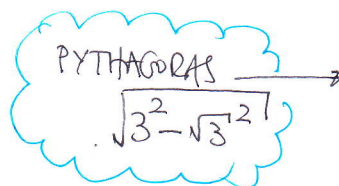 PYTHAGORAS
√(3² - √3²)